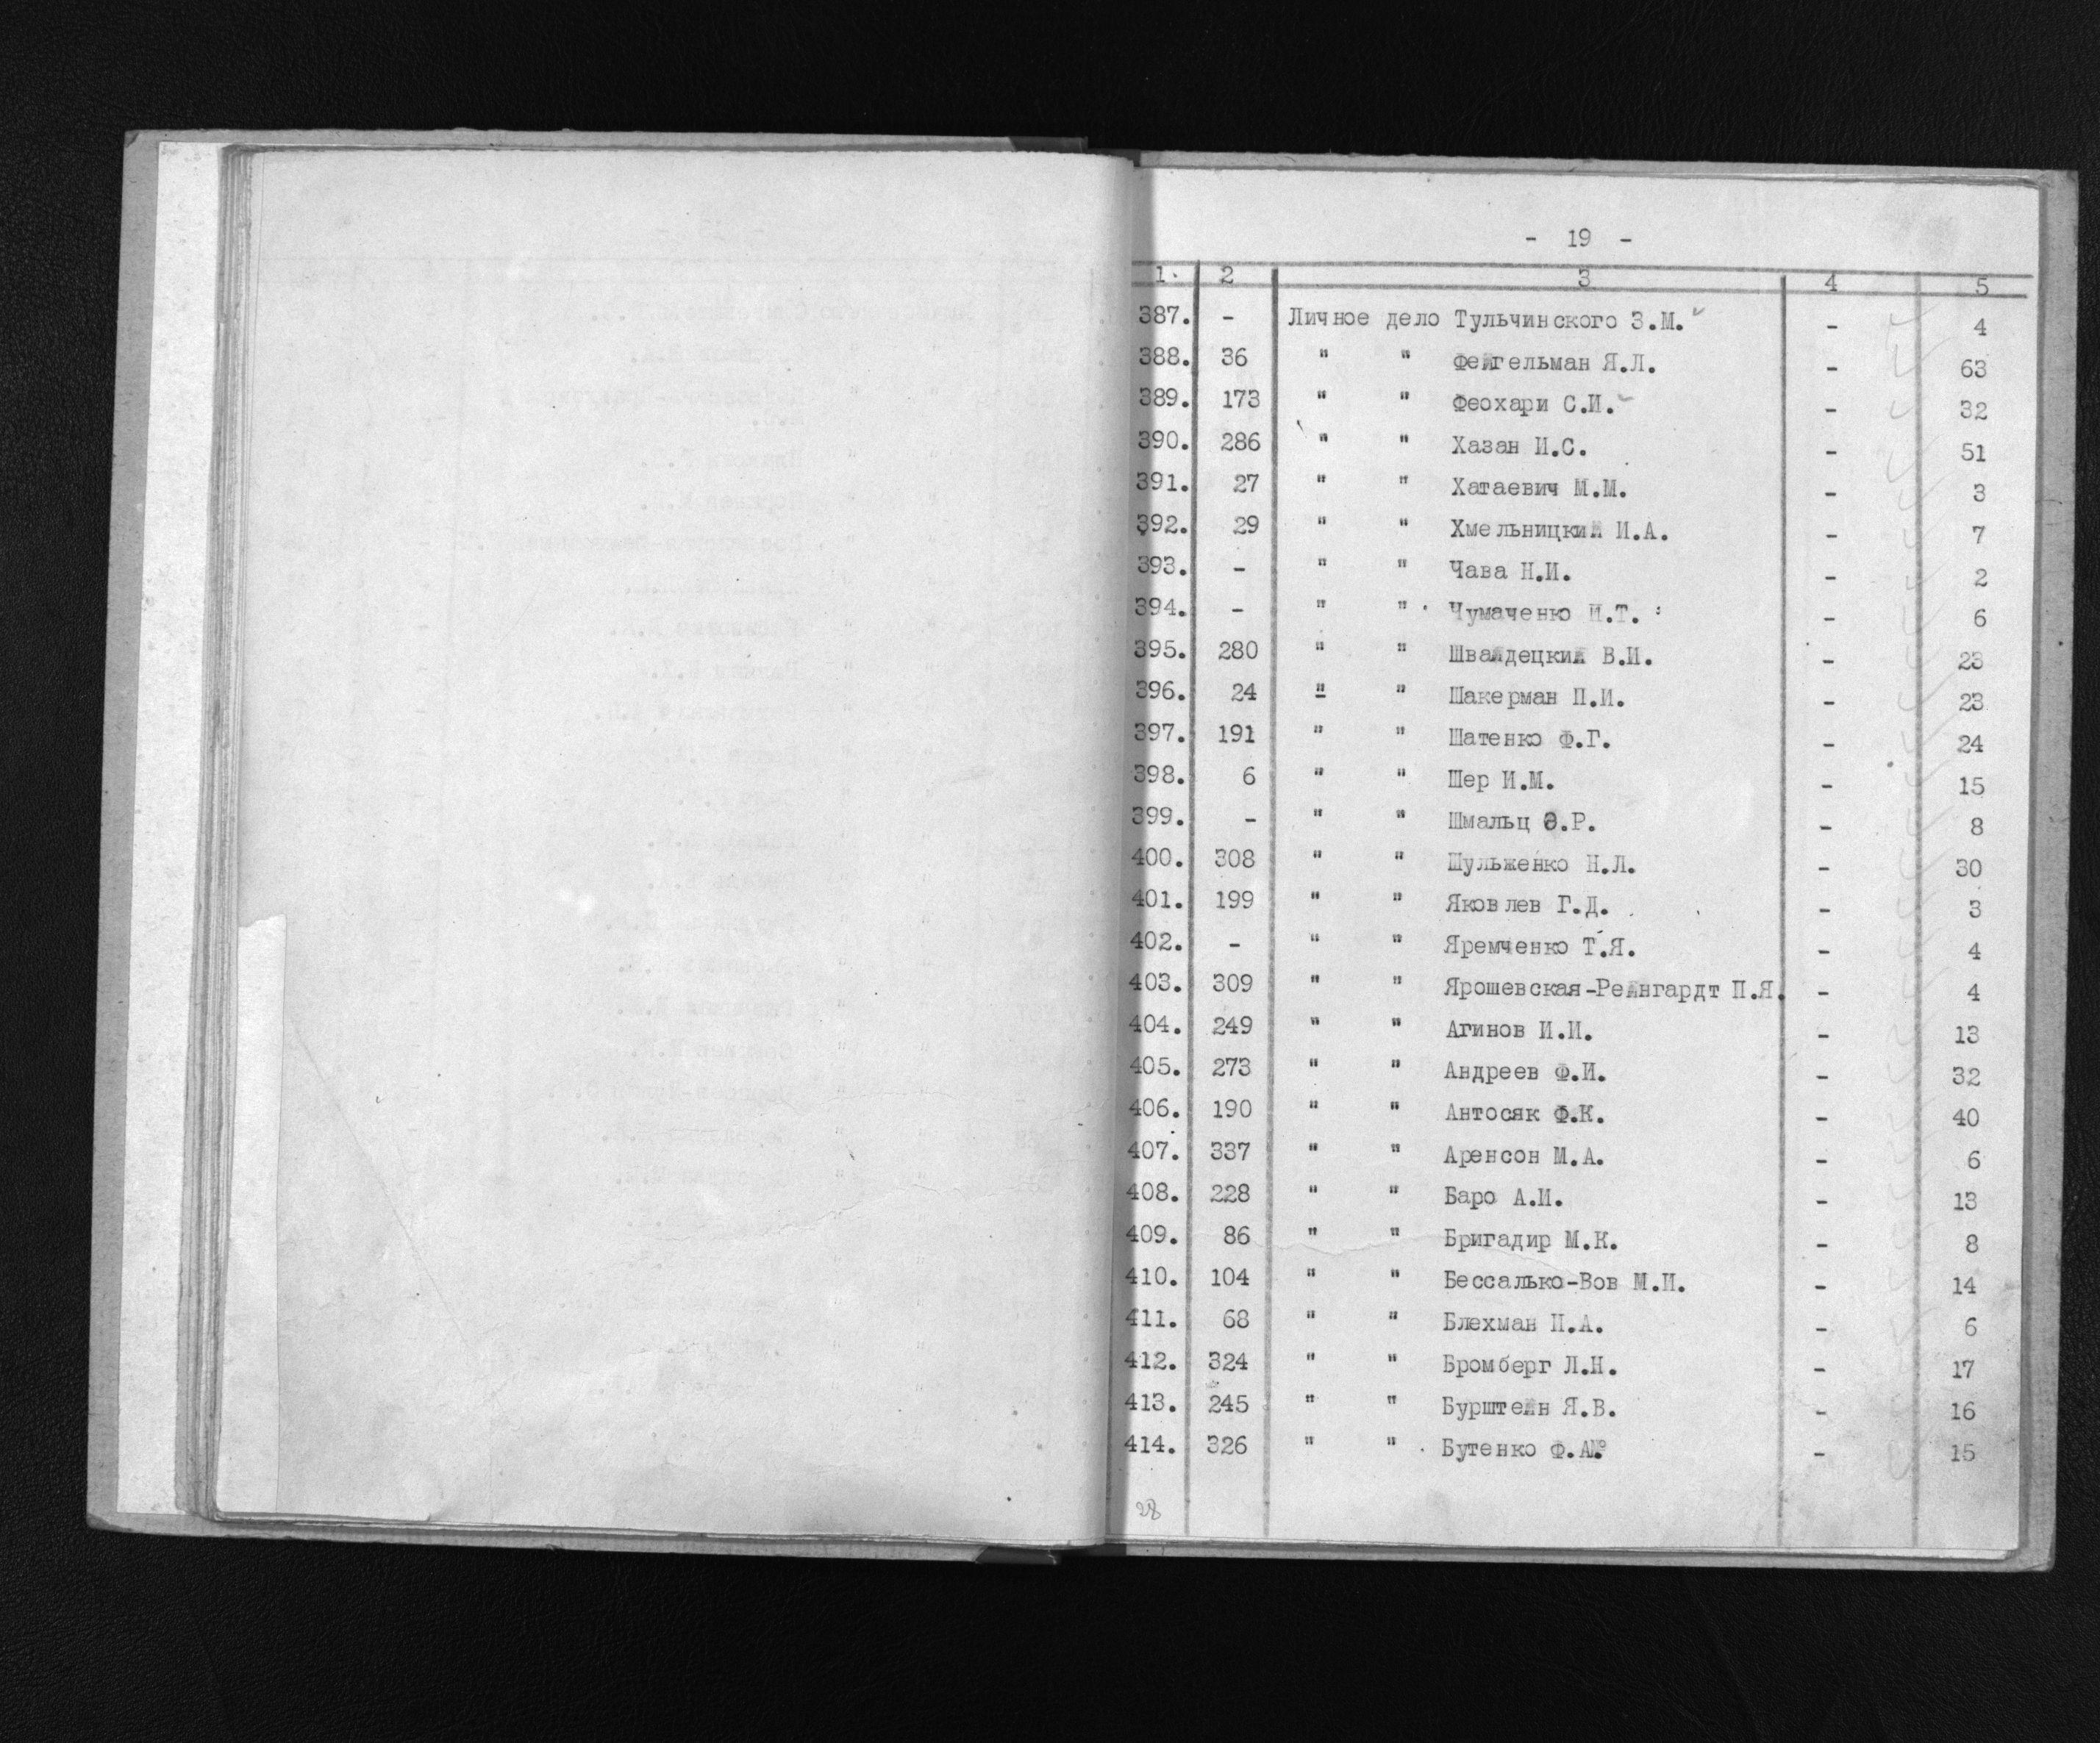 - 19 -
1. 2 3 4 5
387. - Личное дело Тульчинского З.М. - 4
388. 36 " " Фейгельман Я.Л. - 63
389. 173 " " Феохари С.И. - 32
390. 286 " " Хазан И.С. - 51
391. 27 " " Хатаевич М.М. - 3
392. 29 " " Хмельницкий И.А. - 7
393. - " " Чава Н.И. - 2
394. - " " Чумаченко И.Т. - 6
395. 280 " " Швайдецкий В.И. - 23
396. 24 " " Шакерман П.И. - 23
397. 191 " " Шатенко Ф.Г. - 24
398. 6 " " Шер И.М. - 15
399. - " " Шмальц Э.Р. - 8
400. 308 " " Шульженко Н.Л. - 30
401. 199 " " Яковлев Г.Д. - 3
402. - " " Яремченко Т.Я. - 4
403. 309 " " Ярошевская-Рейнгардт П.Я. - 4
404. 249 " " Агинов И.И. - 13
405. 273 " " Андреев Ф.И. - 32
406. 190 " " Антосяк Ф.К. - 40
407. 337 " " Аренсон М.А. - 6
408. 228 " " Баро А.И. - 13
409. 86 " " Бригадир М.К. - 8
410. 104 " " Бессалько-Вов М.И. - 14
411. 68 " " Блехман П.А. - 6
412. 324 " " Бромберг Л.Н. - 17
413. 245 " " Бурштейн Я.В. - 16
414. 326 " " Бутенко Ф.А. - 15
28